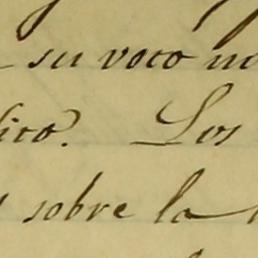 su voco
ico? Los
sobre la